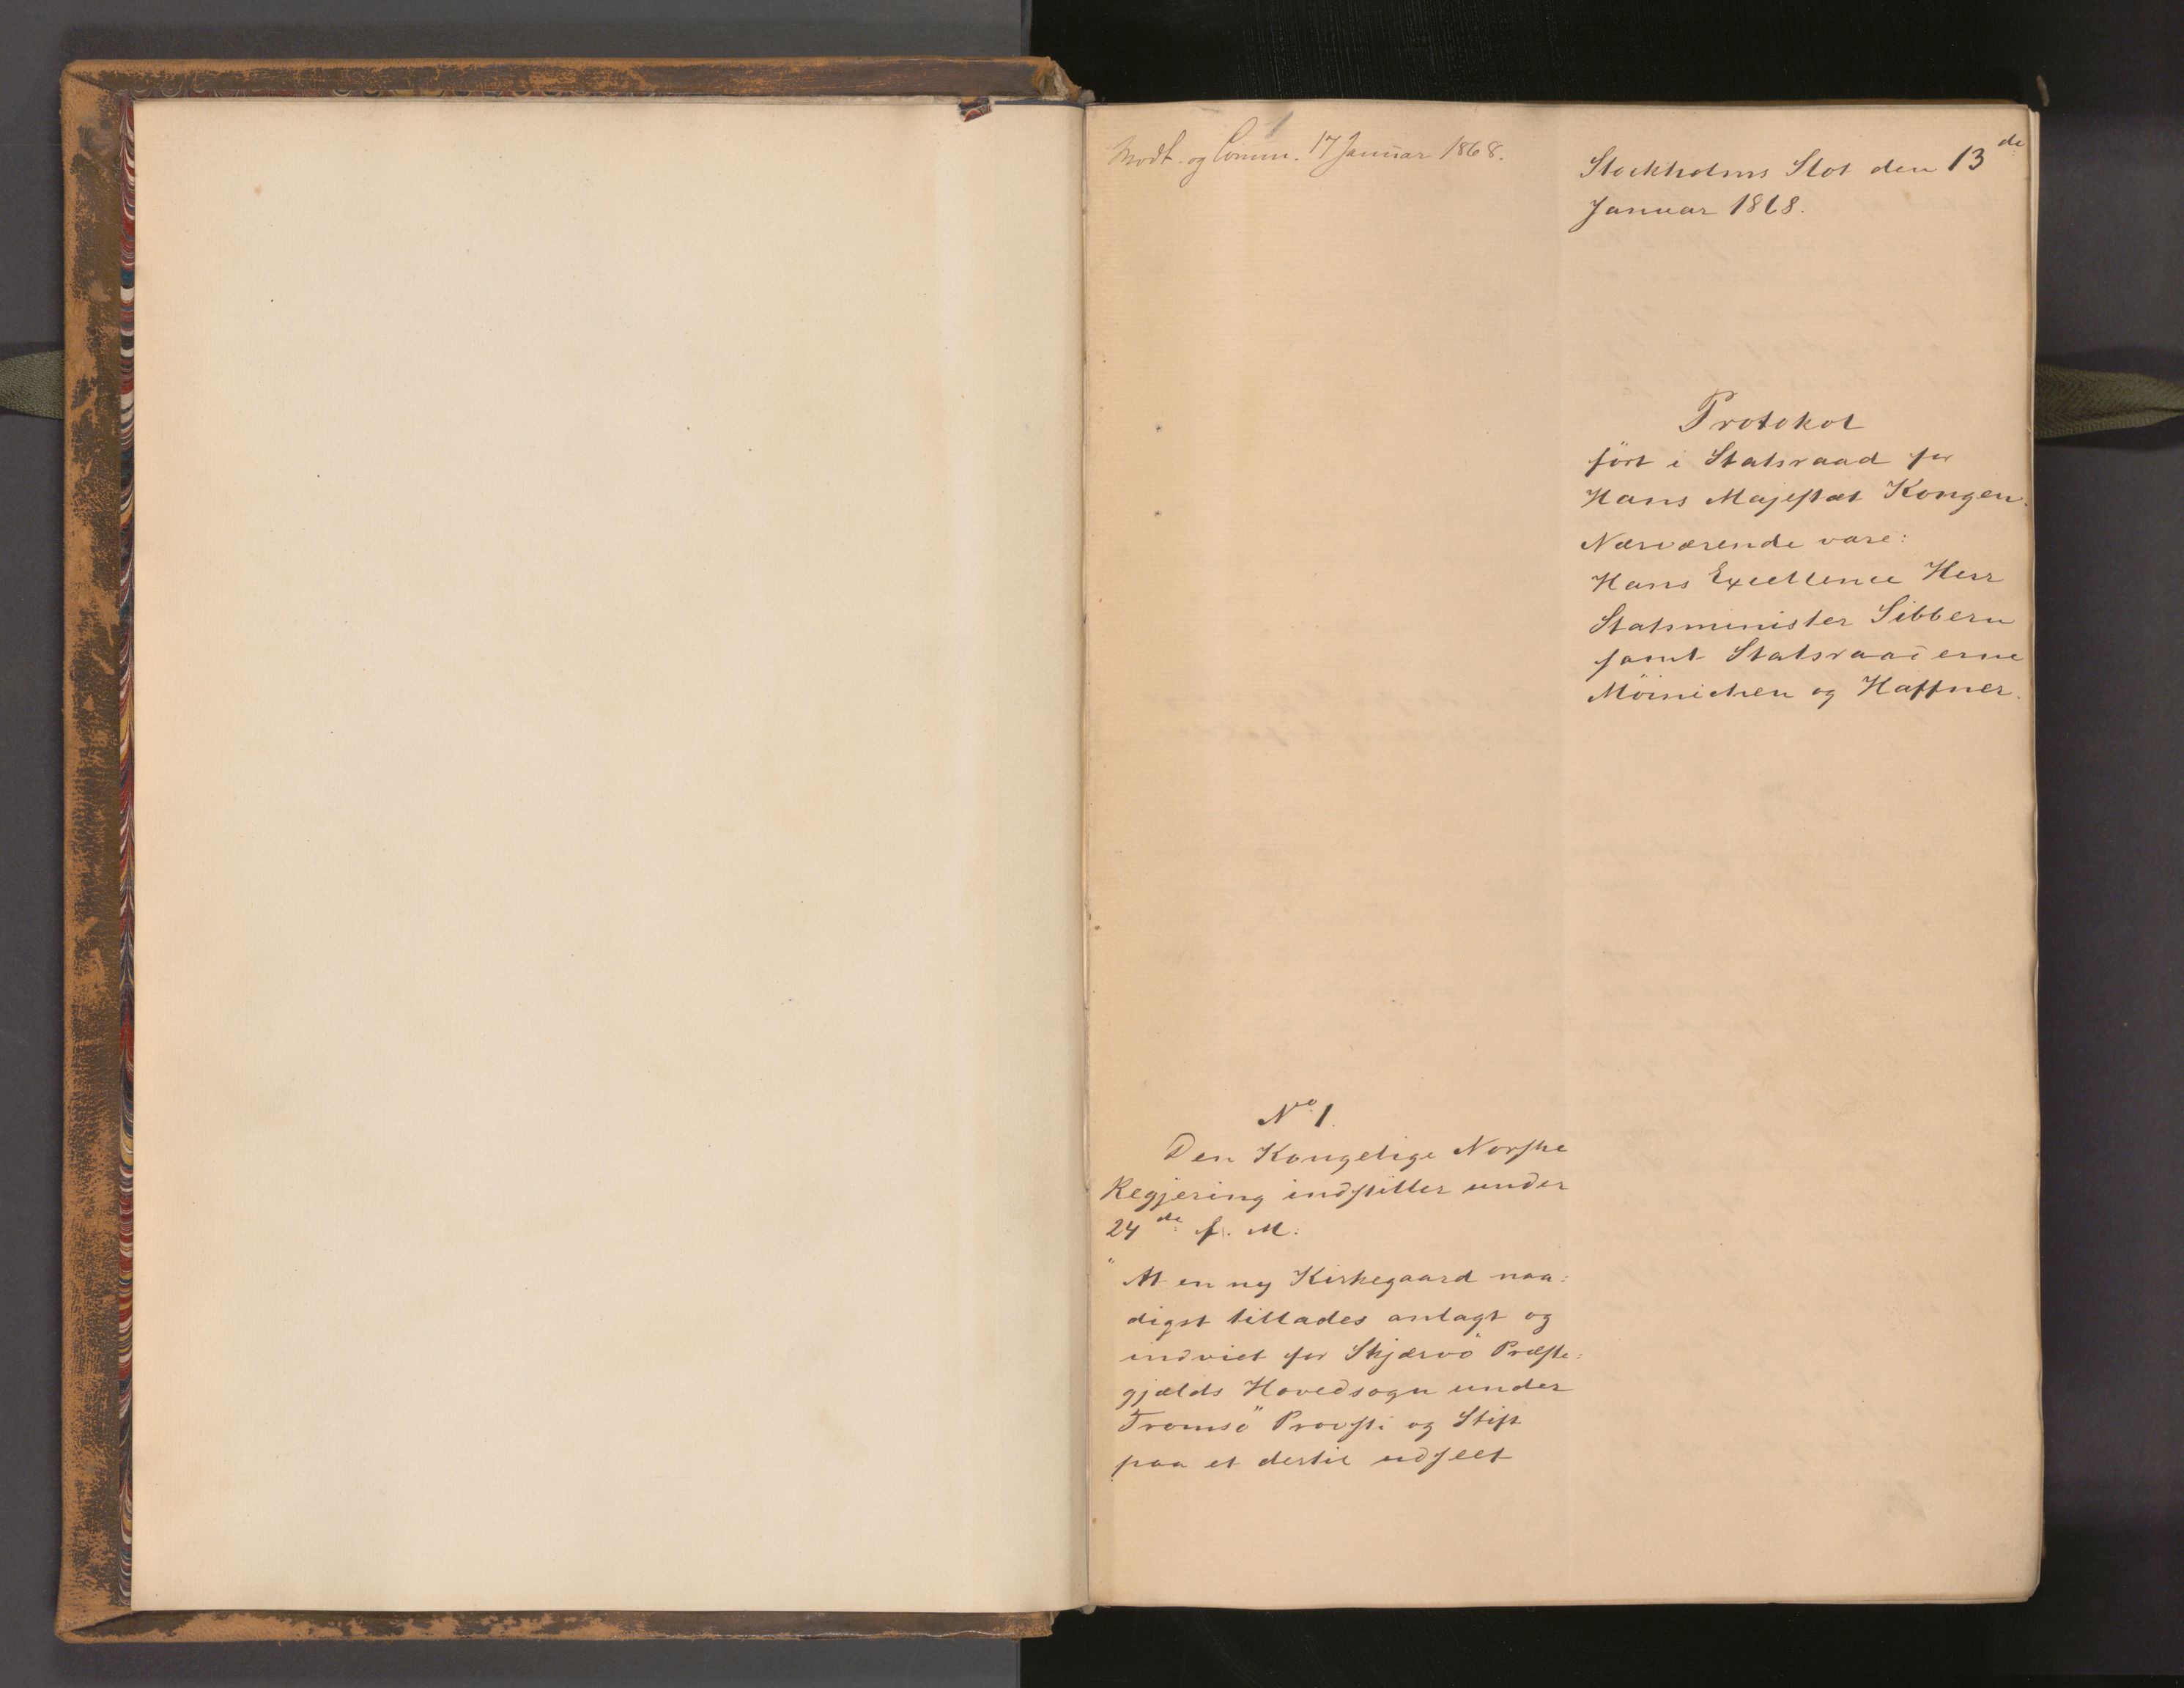 1
Modt. og Comm. 17 Januar 1868.
Stockholms Slot den 13de
Januar 1868.
Protokol
ført i Statsraad for
Hans Majestæt Kongen.
Nærværende vare:
Hans Excellence Herr
Statsminister Sibbern
samt Statsraaderne
Möinichen og Haffner.
No 1.
Den Kongelige Norske
Regjering indstiller under
24de f. M:
"At en ny Kirkegaard naa:
digst tillades anlagt og
indviet for Skjærvö Præste:
gjælds Hovedsogn under
Tromsö Provsti og Stift
paa et dertil udseet